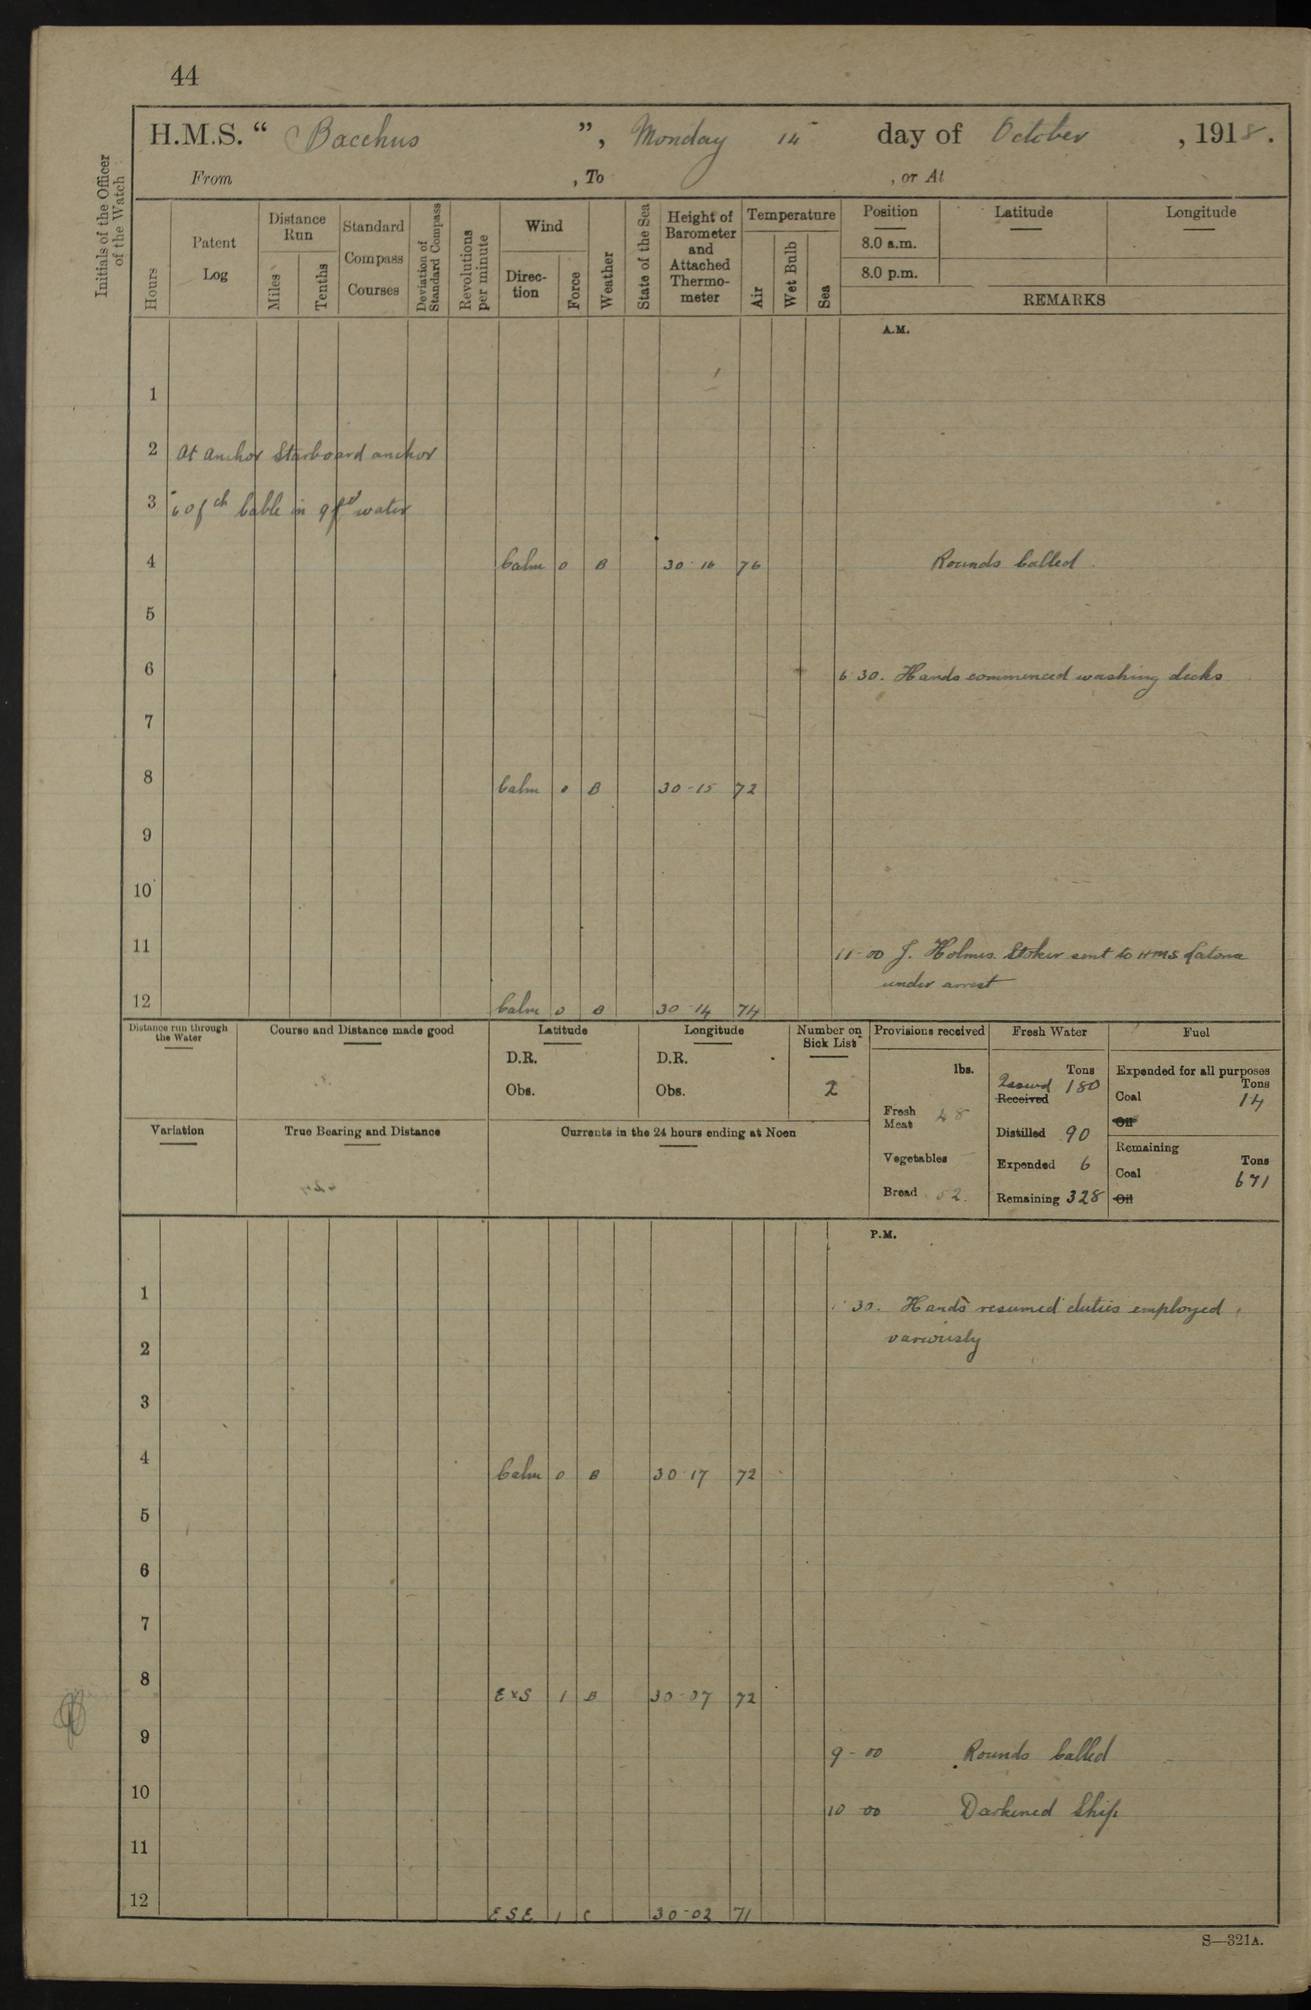 44
H.M.S. “ Bacchus ”, Monday 14 day of October , 1918.
From , To , or At
Initials of the Officer
of the Watch
Hours
Patent
Log
Distance
Run
Miles
Tenths
Standard
Compass
Courses
Deviation of
Standard Compass
Revolutions
per minute
Wind
Direc-
tion
Force
Weather
State of the Sea
Height of
Barometer
and
Attached
Thermo-
meter
Temperature
Air
Wet Bulb
Sea
Position
8.0 a.m.
8.0 p.m.
Latitude
Longitude
REMARKS
A.M.
1
2 At Anchor Starboard anchor
3 60 fth Cable in 9 water
4 Calm 0 B 30 16 76 Rounds Called
5
6 6 30. Hands commenced washing decks
7
8 Calm 0 B 30-15 72
9
10
11 11-00 J. Holmes. Stoker sent to HMS Latona
under arrest
12 Calm 0 B 30 14 74
Distance run through
the Water
Course and Distance made good
Latitude
D.R.
Obs.
Longitude
D.R.
Obs.
Number on
Sick List
2
Provisions received
lbs.
Fresh
Meat 48
Vegetables
Bread 52.
Fresh Water
Tons
Issued 180
Received
Distilled 90
Expended 6
Remaining 328
Fuel
Expended for all purposes
Tons
Coal 14
Oil
Remaining
Tons
Coal 671
Oil
Variation
True Bearing and Distance
Currents in the 24 hours ending at Noon
P.M.
1 1 30. Hands resumed duties employed
variously
2
3
4 Calm 0 B 30 17 72
5
6
7
8 ExS 1 B 30-07 72
9 9-00 Rounds Called
10 10 00 Darkened Ship
11
12 ESE 1 C 30-02 71
S—321A.